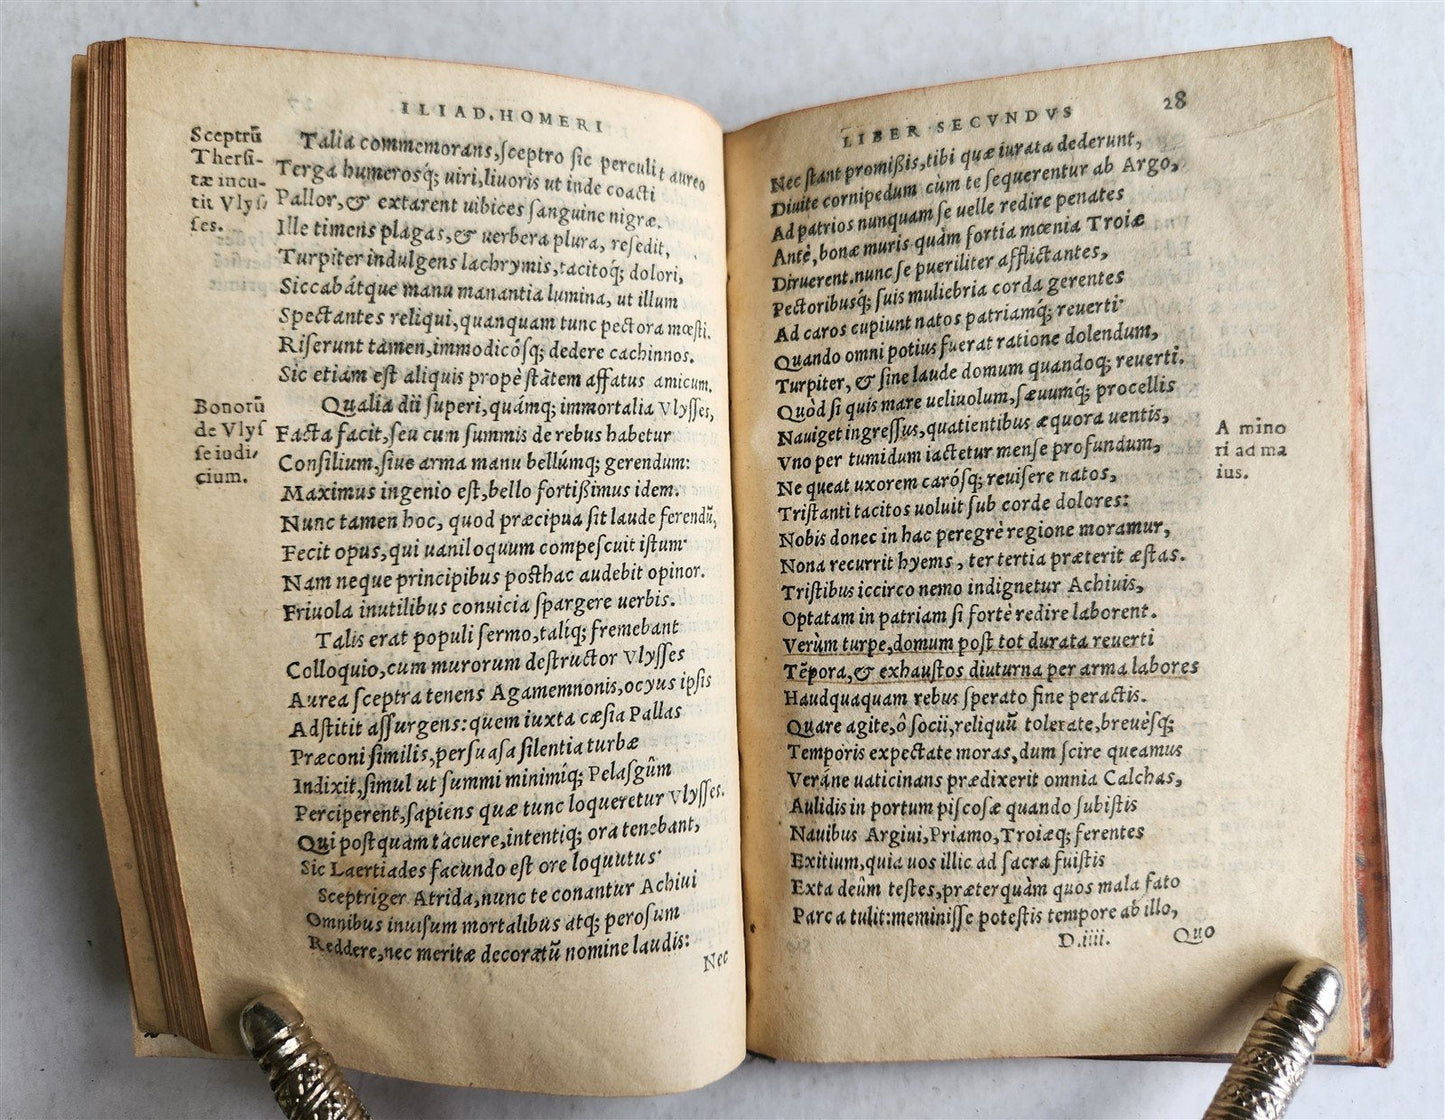 ILIAD. HOMERI
Sceptrū
Thersi-
tæ incu-
tit Vlyſ
ſes.
Talia commemorans, ſceptro ſic perculit aureo
Terga humerosq; uiri, liuoris ut inde coacti
Pallor, & extarent uibices ſanguine nigræ.
Ille timens plagas, & uerbera plura, reſedit,
Turpiter indulgens lachrymis, tacitoq; dolori,
Siccabátque manu manantia lumina, ut illum
Spectantes reliqui, quanquam tunc pectora mœſti.
Riſerunt tamen, immodicósq; dedere cachinnos.
Sic etiam eſt aliquis propè ſtãtem affatus amicum.
Bonorū
de Vlyſ
ſe iudi-
cium.
Qualia dii ſuperi, quámq; immortalia Vlyſſes,
Facta facit, ſeu cum ſummis de rebus habetur
Conſilium, ſiue arma manu bellúmq; gerendum:
Maximus ingenio eſt, bello fortißimus idem.
Nunc tamen hoc, quod præcipua ſit laude ferendū,
Fecit opus, qui uaniloquum compeſcuit iſtum.
Nam neque principibus poſthac audebit opinor.
Friuola inutilibus conuicia ſpargere uerbis.
Talis erat populi ſermo, taliq; fremebant
Colloquio, cum murorum deſtructor Vlyſſes
Aurea ſceptra tenens Agamemnonis, ocyus ipſis
Adſtitit aſſurgens: quem iuxta cæſia Pallas
Præconi ſimilis, perſuaſa ſilentia turbæ
Indixit, ſimul ut ſummi minimíq; Pelaſgûm
Perciperent, ſapiens quæ tunc loqueretur Vlyſſes.
Qui poſtquàm tacuere, intentiq; ora tenebant,
Sic Laertiades facundo eſt ore loquutus.
Sceptriger Atrida, nunc te conantur Achiui
Omnibus inuiſum mortalibus atq; peroſum
Reddere, nec meritæ decoratū nomine laudis:
Nec
LIBER SECVNDVS 28
Nec ſtant promißis, tibi quæ iurata dederunt,
Diuite cornipedum cùm te ſequerentur ab Argo,
Ad patrios nunquam ſe uelle redire penates
Antè, bonæ muris quàm fortia mœnia Troiæ
Diruerent. nunc ſe pueriliter afflictantes,
Pectoribusq; ſuis muliebria corda gerentes
Ad caros cupiunt natos patriamq; reuerti.
Quando omni potius fuerat ratione dolendum,
Turpiter, & ſine laude domum quandoq; reuerti.
Quòd ſi quis mare ueliuolum, ſæuumq; procellis
Nauiget ingreſſus, quatientibus æquora uentis,
Vno per tumidum iactetur menſe profundum,
Ne queat uxorem carósq; reuiſere natos,
Triſtanti tacitos uoluit ſub corde dolores:
A mino
ri ad ma
ius.
Nobis donec in hac peregrè regione moramur,
Nona recurrit hyems, ter tertia præterit æſtas.
Triſtibus iccirco nemo indignetur Achiuis,
Optatam in patriam ſi fortè redire laborent.
Verùm turpe, domum poſt tot durata reuerti
Tẽpora, & exhauſtos diuturna per arma labores
Haudquaquam rebus ſperato fine peractis.
Quare agite, ô ſocii, reliquū tolerate, breuésq;
Temporis expectate moras, dum ſcire queamus
Veráne uaticinans prædixerit omnia Calchas,
Aulidis in portum piſcoſæ quando ſubiſtis
Nauibus Argiui, Priamo, Troiæq; ferentes
Exitium, quia uos illic ad ſacra fuiſtis
Exta deûm teſtes, præterquàm quos mala fato
Parca tulit: meminiſſe poteſtis tempore ab illo,
D.iiii. Quo